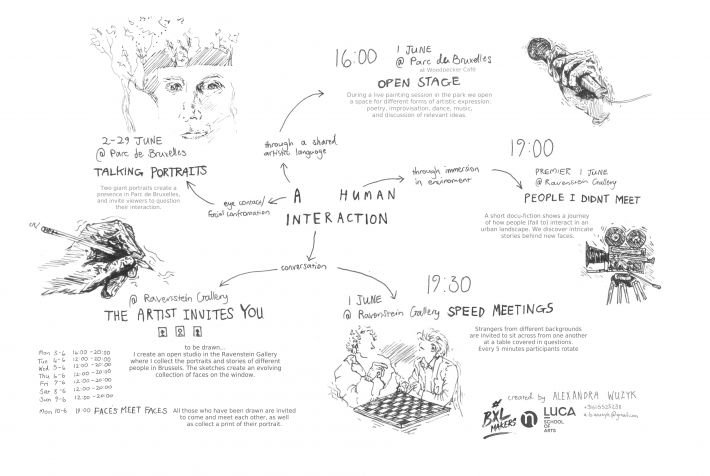 16:00
1 JUNE
@ Parc de Bruxelles
at Woodpecker Café
OPEN STAGE
During a live painting session in the park we open
a space for different forms of artistic expression:
poetry, improvisation, dance, music,
and discussion of relevant ideas
2-29 JUNE
@ Parc de Bruxelles
TALKING PORTRAITS
Two giant portraits create a
presence in Parc de Bruxelles,
and invite viewers to question
their interaction.
through a shared
artistic language
eye contact/
facial confrontation
A HUMAN
INTERACTION
through immersion
in environment
19:00
PREMIER 1 JUNE
@ Ravenstein Gallery
PEOPLE I DIDNT MEET
A short docu-fiction shows a journey
of how people (fail to) interact in an
urban landscape. We discover intricate
stories behind new faces.
conversation
@ Ravenstein Gallery
THE ARTIST INVITES YOU
to be drawn...
I create an open studio in the Ravenstein Gallery
where I collect the portraits and stories of different
people in Brussels. The sketches create an evolving
collection of faces on the window.
Mon 3-6 16:00-20:00
Tue 4-6 12:00-20:00
Wed 5-6 12:00-20:00
Thu 6-6 12:00-20:00
Fri 7-6 12:00-20:00
Sat 8-6 12:00-20:00
Sun 9-6 12:00-20:00
Mon 10-6 19:00 FACES MEET FACES All those who have been drawn are invited
to come and meet each other, as well
as collect a print of their portrait.
19:30
1 JUNE
@ Ravenstein Gallery SPEED MEETINGS
Strangers from different backgrounds
are invited to sit across from one another
at a table covered in questions.
Every 5 minutes participants rotate
created by ALEXANDRA WUZYK
BXL
MAKERS
n
LUCA
SCHOOL
OF
ARTS